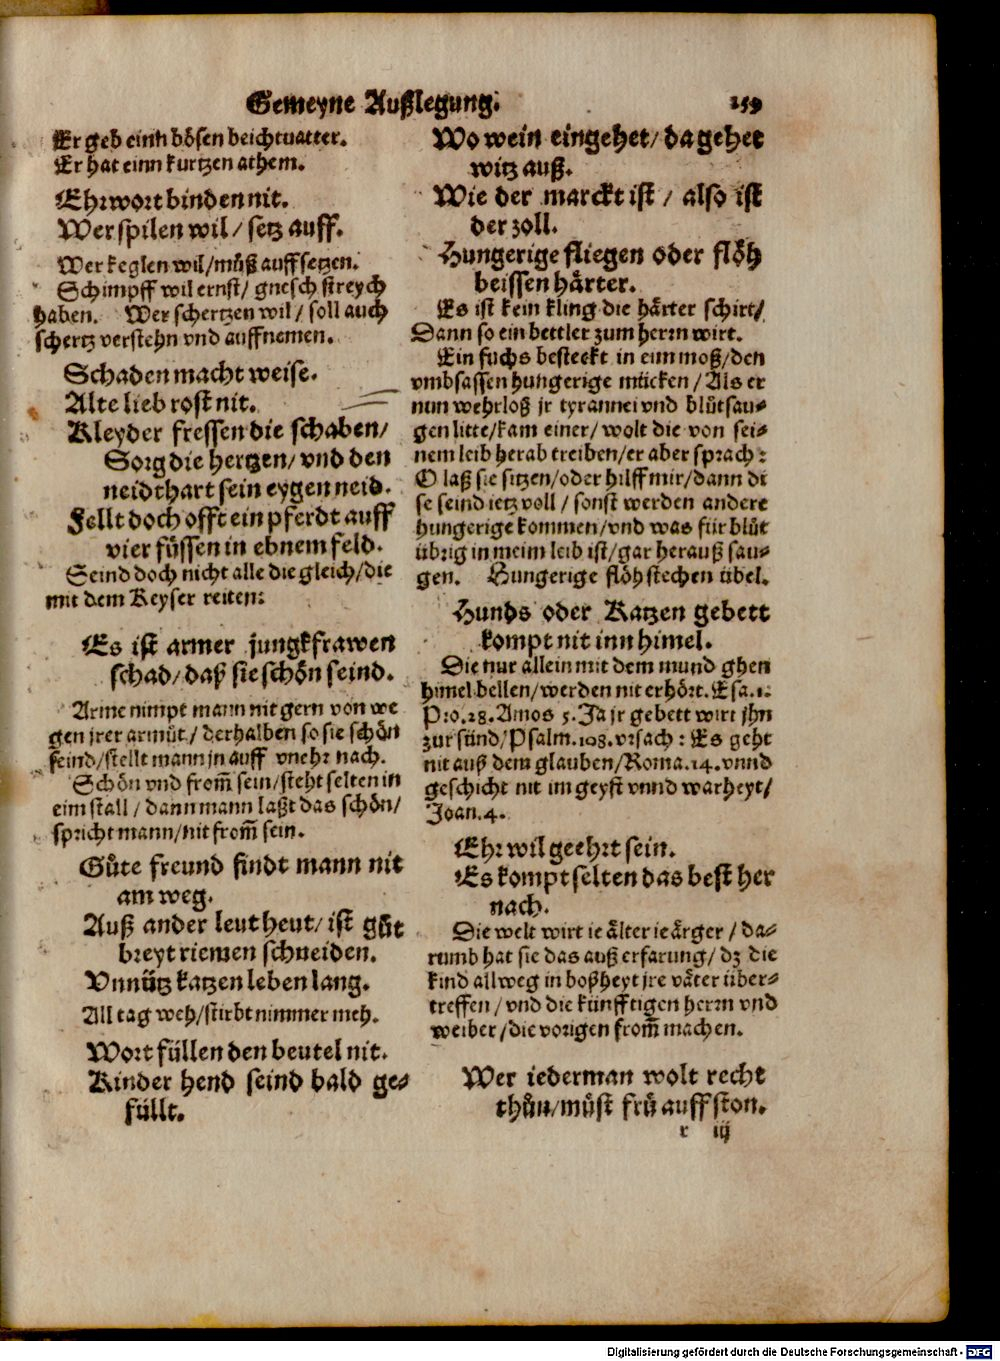 Gemeyne Außlegung. 159
Er geb einn bösen beichtuatter.
Er hat einn kurtzen athem.
Ehrwort binden nit.
Wer spilen wil/ setz auff.
Wer keglen wil/müß auffsetzen.
Schimpff wil ernst/ gnesch streych
haben. Wer schertzen wil/ soll auch
schertz verstehn vnd auffnemen.
Schaden macht weise.
Alte lieb rost nit.
Kleyder fressen die schaben/
Sorg die hertzen/ vnd den
neidthart sein eygen neid.
Fellt doch offt ein pferdt auff
vier füssen in ebnem feld.
Seind doch nicht alle die gleich/die
mit dem Keyser reiten:
Es ist armer jungkfrawen
schad/daß sie schön seind.
Arme nimpt mann nit gern von we
gen jrer armüt/ derhalben so sie schön
seind/stellt mann jn auff vnehr nach.
Schön vnd from̃ sein/steht selten in
eim stall/ dann mann laßt das schön/
spricht mann/nit from̃ sein.
Gůte freund findt mann nit
am weg.
Auß ander leut heut/ist gůt
breyt riemen schneiden.
Vnnütz katzen leben lang.
All tag weh/stirbt nimmer meh.
Wort füllen den beutel nit.
Kinder hend seind bald ge-
füllt.
Wo wein eingehet/da gehet
witz auß.
Wie der marckt ist/ also ist
der zoll.
Hungerige fliegen oder flöh
beissen härter.
Es ist kein kling die härter schirt/
Dann so ein bettler zum herrn wirt.
Ein fuchs besteckt in eim moß/den
vmbsassen hungerige mücken/Als er
nun wehrloß jr tyrannei vnd blůtsau-
gen litte/kam einer/ wolt die von sei-
nem leib herab treiben/er aber sprach:
O laß sie sitzen/oder hilff mir/dann di
se seind ietz voll/ sonst werden andere
hungerige kommen/vnd was für blůt
übrig in meim leib ist/gar herauß sau-
gen. Hungerige flöh stechen übel.
Hunds oder Katzen gebett
kompt nit inn himel.
Die nur allein mit dem mund ghen
himel bellen/werden nit erhört. Esa.1.
Pro.28. Amos 5. Ja jr gebett wirt jhn
zur sünd/Psalm.108. vrsach: Es geht
nit auß dem glauben/Roma.14. vnnd
geschicht nit im geyst vnnd warheyt/
Joan.4.
Ehr wil geehrt sein.
Es kompt selten das best her
nach.
Die welt wirt ie älter ie ärger/ da-
rumb hat sie das auß erfarung/ dz die
kind allweg in boßheyt jre väter über-
treffen/ vnd die künfftigen herrn vnd
weiber/die vorigen from̃ machen.
Wer iederman wolt recht
thůn/můst frü auffston.
r iij
Digitalisierung gefördert durch die Deutsche Forschungsgemeinschaft - DFG